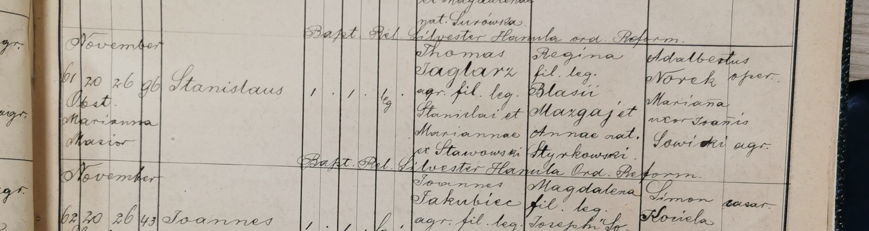 et Magdalenae
nat. Surówka.
Bapt. Rel. Silvester Hamula ord. Reform.
November
agr.
Thomas Regina Adalbertus
Taglarz fil. leg. Norek oper.
61 20 26 96 Stanislaus 1 . 1 . leg agr. fil. leg. Blasii Mariana
Obst. Stanislai et Mazgaj et uxor Joanis
Marianna Mariannae Annae nat. Sowicki agr.
Masior ex Stawowski Styrkowski.
Bapt. Rel. Silvester Hamula Ord. Reform.
November
agr.
Joannes Magdalena Simon casar.
Jakubiec fil. leg. Kociela
62 20 26 43 Joannes agr. fil. leg. Josephi